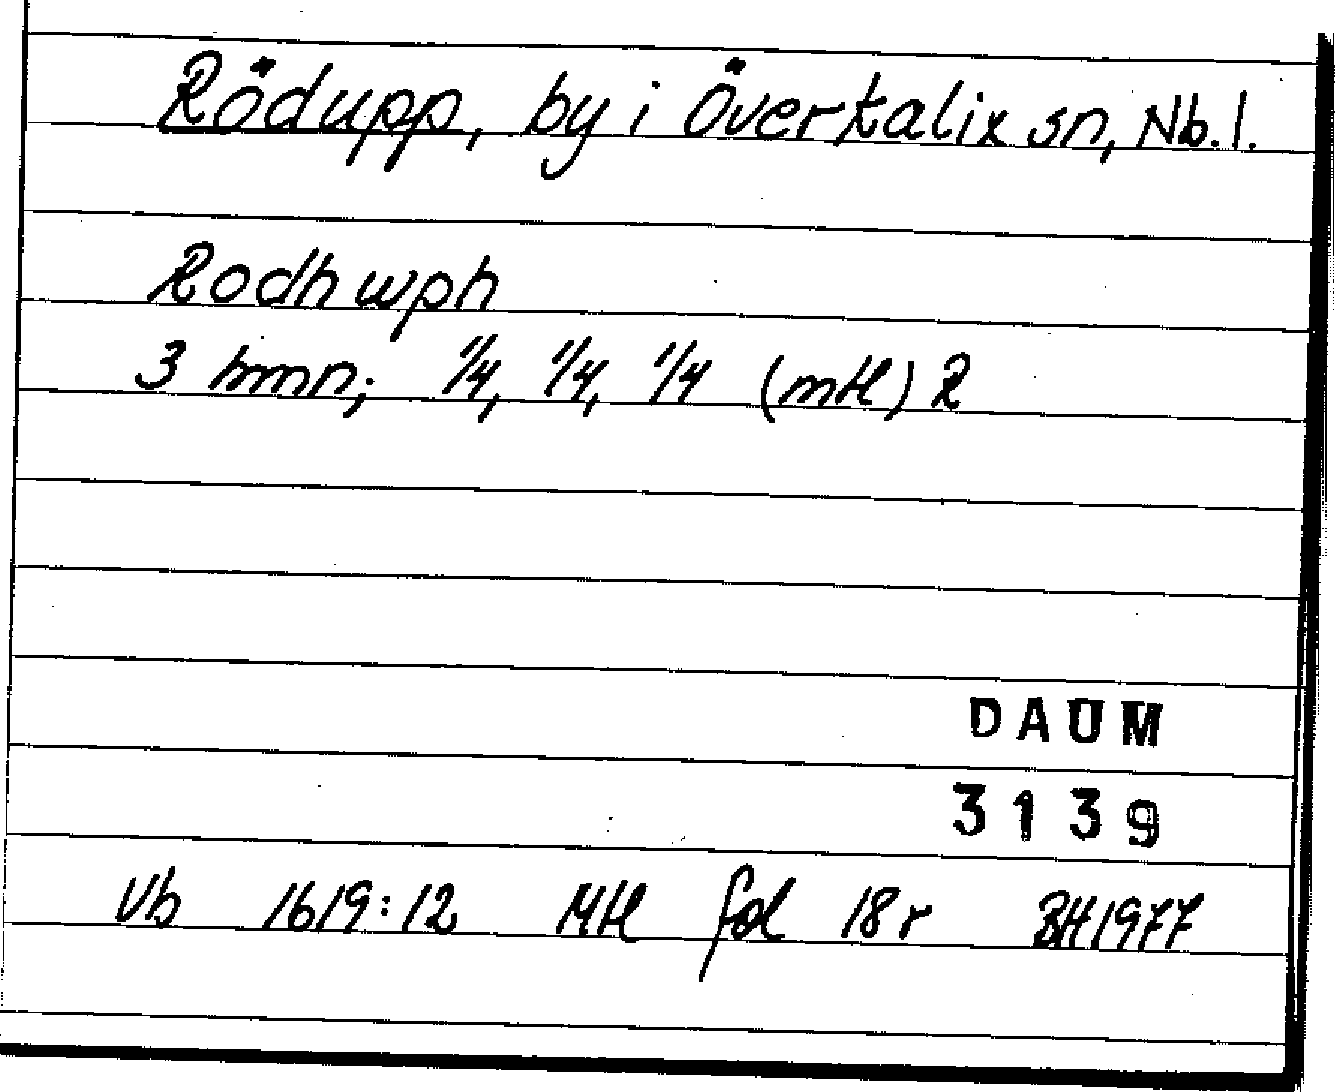 Rödupp, by i Överkalix sn, Nb. l.
Rodhwph
3 hmn; 1/4, 1/4, 1/4 (mtl) R
DAUM
3139
Vb 1619:12 Mtl fol 18 r BH 1977